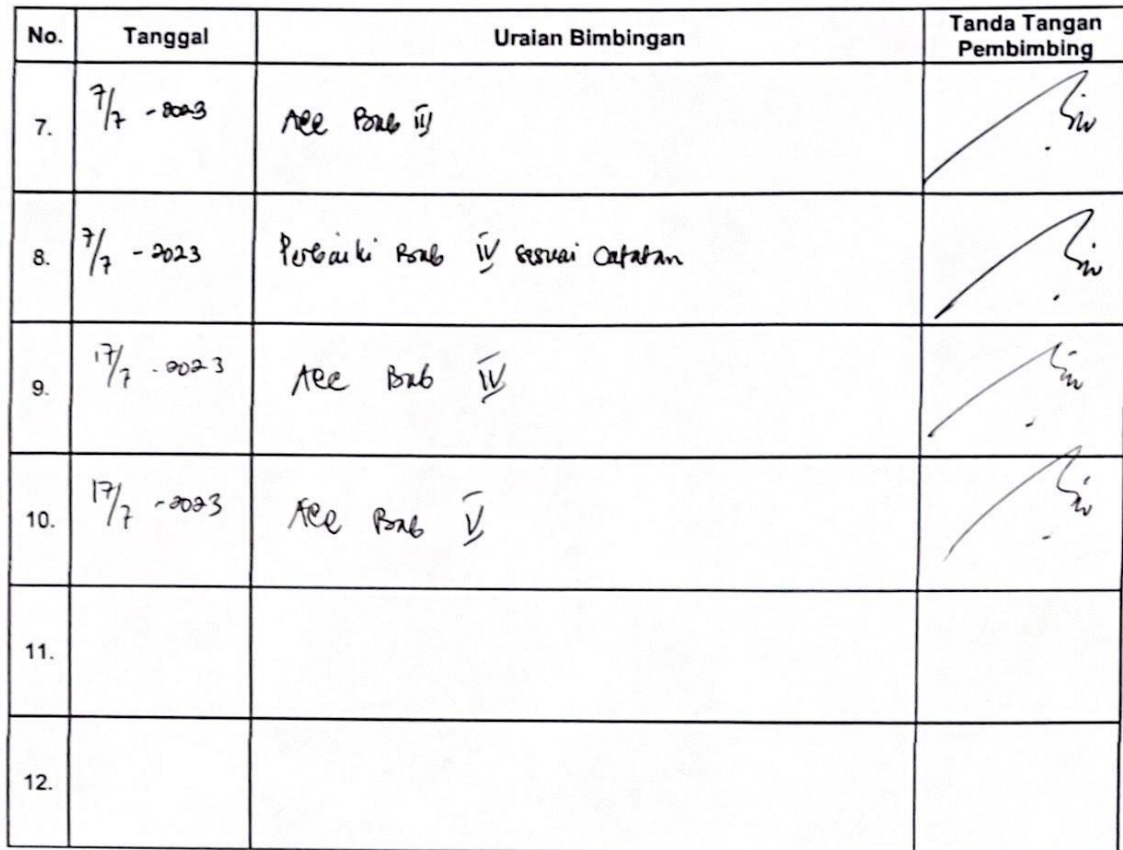 No. Tanggal Uraian Bimbingan Tanda Tangan Pembimbing
7. 7/7 - 2023 Acc Bab III
8. 7/7 - 2023 Perbaiki Bab IV sesuai Catatan
9. 17/7 - 2023 Acc Bab IV
10. 17/7 - 2023 Acc Bab V
11.
12.